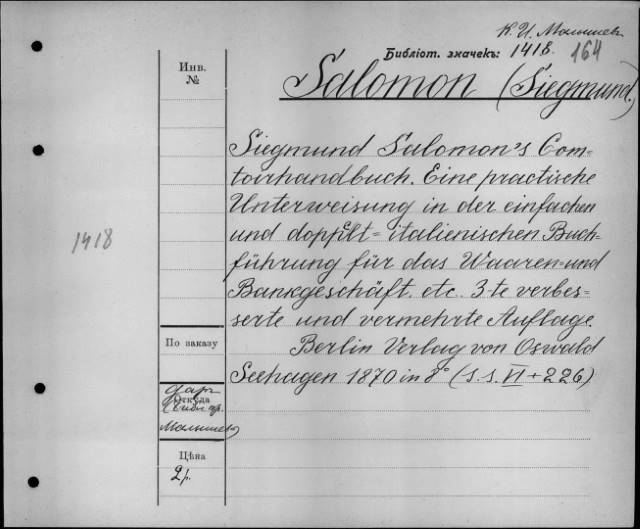 К. И. Малышев
Библіот. значекъ: 1418. 164
Инв.
№
Salomon (Siegmund)
Siegmund Salomon's Com=
toirhandbuch. Eine practische
Unterweisung in der einfachen
und doppelt=italienischen Buch=
führung für das Waaren=und
Bankgeschäft. etc. 3-te verbes=
serte und vermehrte Auflage.
Berlin Verlag von Oswald
Seehagen 1870 in 8° (S.S. VI + 226)
1418
По заказу
даръ
Откуда
Малышев
Цѣна
2р.